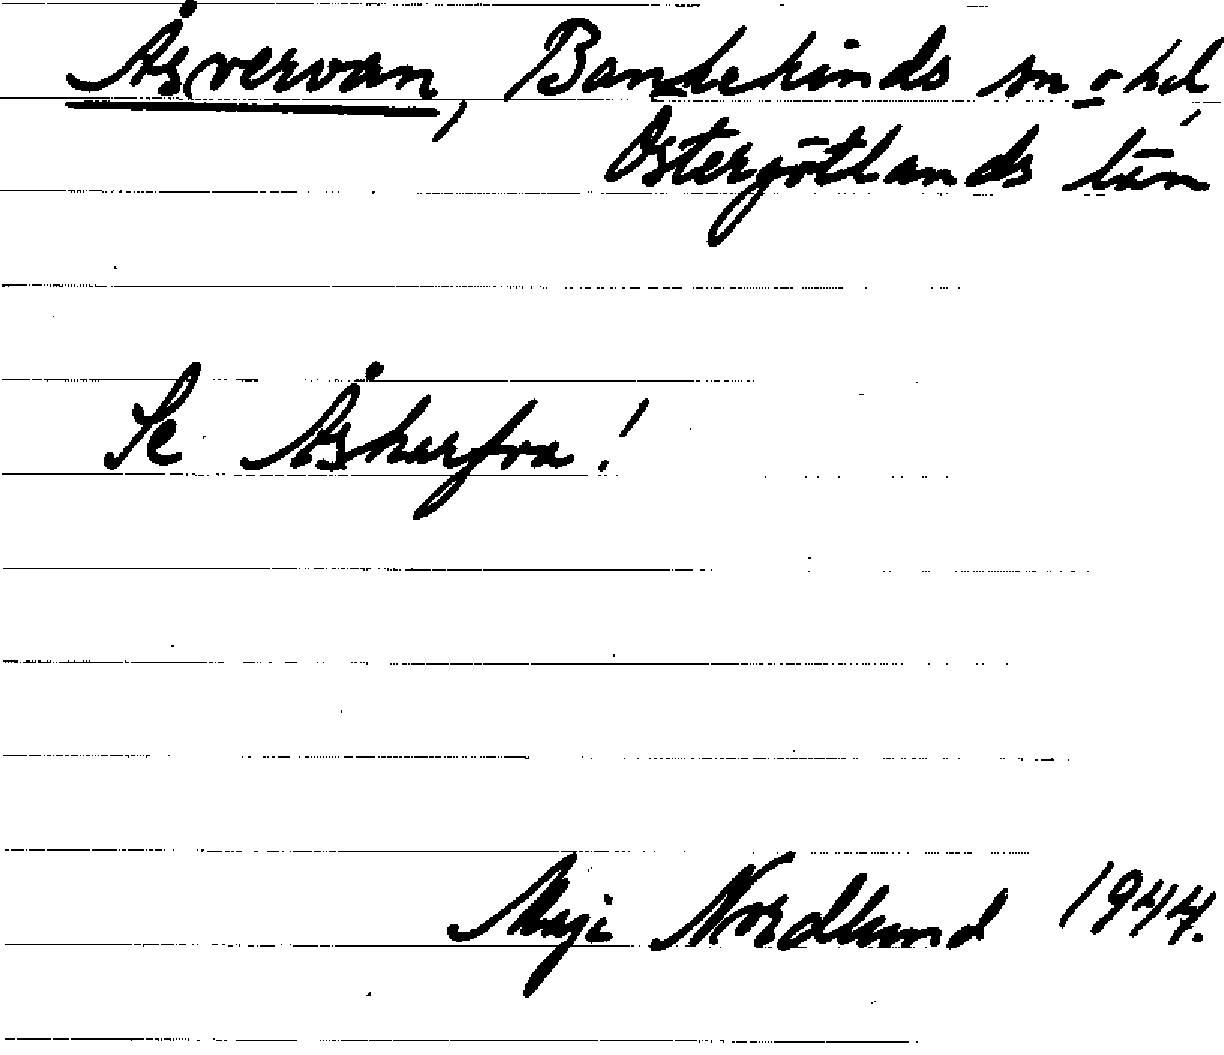 Åsvervan, Bankekinds sn o hd,
Östergötlands län
Se Åskerfva!
Maji Nordlund 1944.